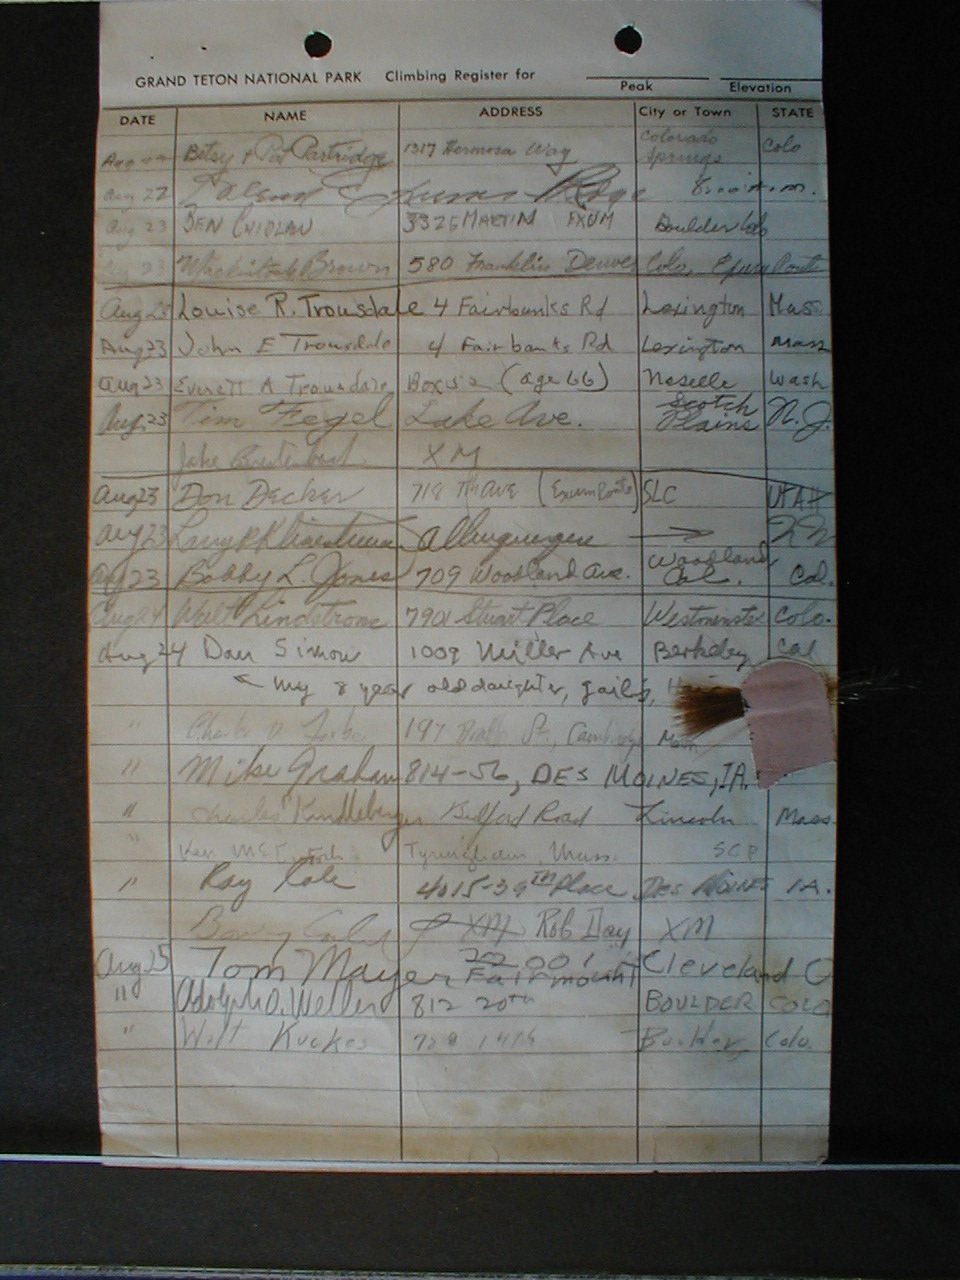 GRAND TETON NATIONAL PARK Climbing Register for
Peak Elevation
DATE NAME ADDRESS City or Town STATE
Aug Betsy + Pat Partridge 1317 Hermosa Way Colorado Springs Colo
Aug 22 Exum Ridge
Aug 23 BEN CHIDLAW 3325 MARTIN EXUM Boulder Colo
Aug 23 Brown 580 Franklin Denver Colo, Exum Route
Aug 23 Louise R. Trousdale 4 Fairbanks Rd Lexington Mass
Aug 23 John E Trousdale 4 Fairbanks Rd Lexington Mass
Aug 23 Everett A Trousdale Box (age 66) Naselle Wash
Aug. 23 Tim Fegel Lake Ave. Scotch Plains N.J.
Jake Breitenbach XM
Aug 23 Don Decker 718 7th AVE (Exum Route) SLC UTAH
Aug 23 Larry Albuquerque → NM
Aug 23 Bobby L. Jones 709 Woodland Ave. Woodland Cal. Cal.
Aug 24 Walt Lindstrom 7901 Stuart Place Westminster Colo.
Aug 24 Dan Simon 1009 Miller Ave Berkeley Cal
← my 8 year old daughter, Gail's,
" Charles D. Forbes 197 St., Cambridge Mass
" Mike Graham 814-56, DES MOINES, IA.
" Charles Kindleberger Bedford Road Lincoln Mass
" Ken Tyringham, Mass.
" Ray Kale 4015-39TH Place DES MOINES IA.
Barry Corbet XM Rob Day XM
Aug 25 Tom Mayer 22001 Fairmount Cleveland O
" Adolph O. Weller 812 20th BOULDER COLO
" Walt Boulder, Colo.